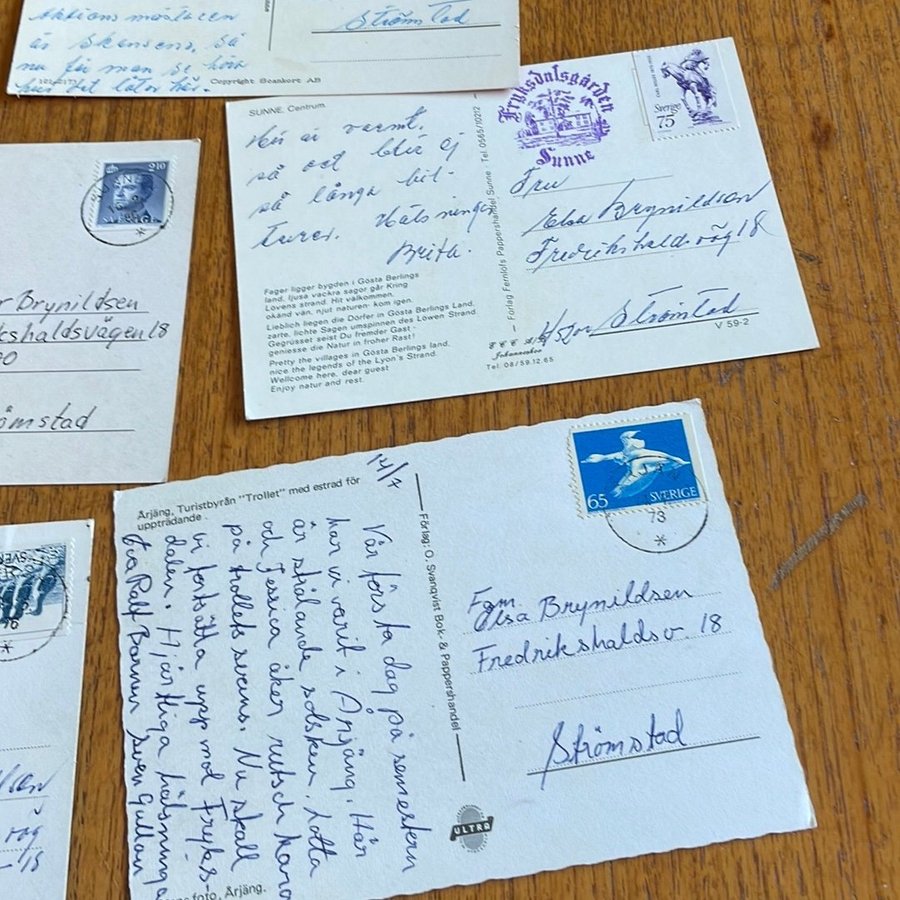 aktions mästaren
är Skansens, så
nu får man se hur
här det låter här.
Copyright Scankort AB
Strömstad
210
SVERIGE
Brynildsen
kshaldsvägen 18
ömstad
SUNNE. Centrum.
Hej är varmt,
så det blir ej
så långa bil-
turer. Hälsningar
Brita.
Fager ligger bygden i Gösta Berlings
land, ljusa vackra sagor går Kring
Lovens strand. Hit välkommen,
okänd vän, njut naturen: kom igen.
Lieblich liegen die Dörfer in Gösta Berlings Land,
zarte, lichte Sagen umspinnen des Löwen Strand.
Gegrüsset seist Du fremder Gast -
geniesse die Natur in froher Rast!
Pretty the villages in Gösta Berlings land,
nice the legends of the Lyon's Strand.
Wellcome here, dear guest
Enjoy natur and rest.
Förlag Fernlöfs Pappershandel Sunne - Tel. 0565/10212
Johanneshov
Tel. 08/59.12.65
Fryksdalsgården
Sunne
Sverige
75
Fru
Elsa Brynildsen
Fredrikshaldsväg 18
Strömstad
V 59-2
Årjäng, Turistbyrån "Trollet" med estrad för
uppträdande.
14/7
Vår första dag på semestern
har vi varit i Årjäng. Här
är strålande solsken. Lotta
och Jessica åker rutschkana
på trollets svans. Nu skall
vi fortsätta upp mot Fryks-
dalen. Hjärtliga hälsningar
Eva Ralf Barnen Sven Gullan
foto, Årjäng.
Förlag: O. Svanqvist Bok- & Pappershandel
ULTRA
65 SVERIGE
73
Fam.
Elsa Brynildsen
Fredrikshaldsv. 18
Strömstad
väg